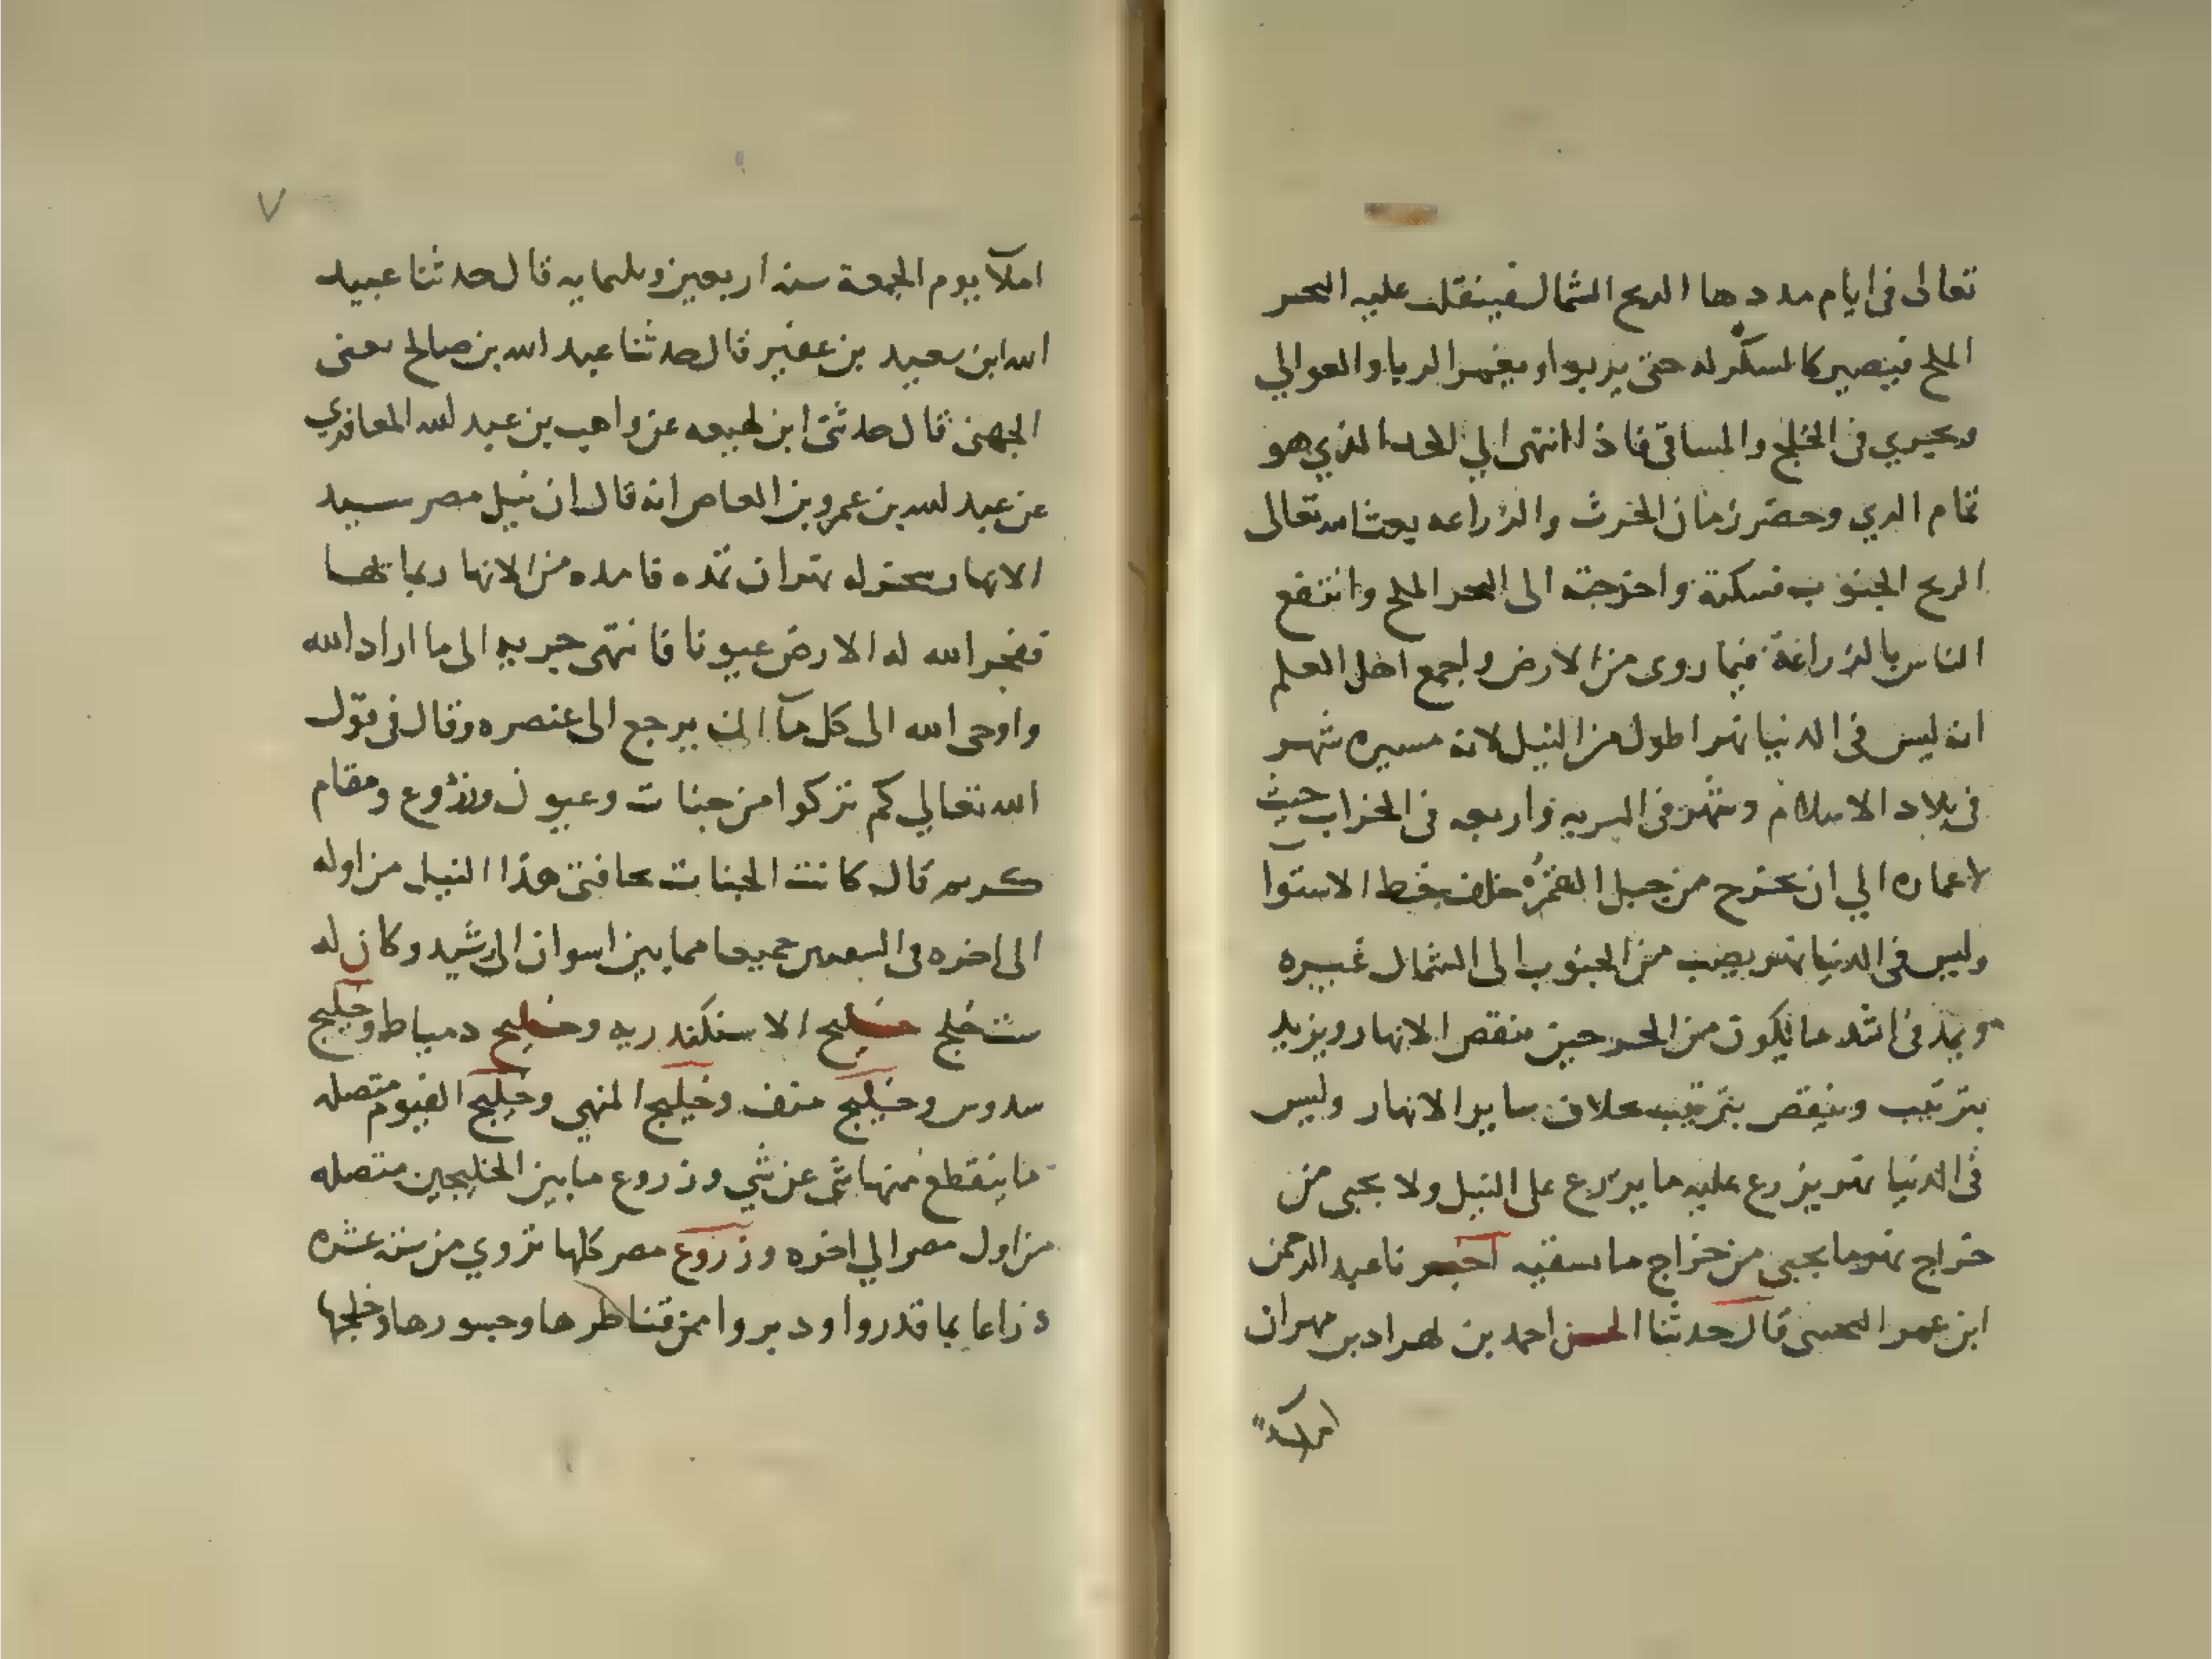 تعالى فى ايام مددها الريح الشمال فينقلب عليه البحر
الملح فيصير كالسكر له حتى يربوا ويغمر الربا والعوالي
ويجري فى الخلج والمساقى فاذا انتهى الي الحد الذي هو
تمام الري وحضر زمان الحرث والزراعه بعث الله تعالى
الريح الجنوب فسكبته واخرجته الى البحر الملح وانتفع
الناس بالزراعة فيما روى من الارض واجمع اهل العلم
انه ليس فى الدنيا نهر اطول من النيل لانه مسيره شهر
فى بلاد الاسلام وشهر فى البريه واربعه فى الخراب حيث
لا عماره الي ان يخرج من جبل القمر خلف خط الاستوا
وليس فى الدنيا نهر يصب من الجنوب الى الشمال غيره
ويمد فى اشد ما يكون من الحر حين تنقص الانهار ويزيد
بترتيب وينقص بترتيب بخلاف ساير الانهار وليس
فى الدنيا نهر يزرع عليه ما يزرع على النيل ولا يجبى من
خراج نهر ما يجبى من خراج ما سقيه نا عبد الرحمن
ابن عمر قال حدثنا الحسن احمد بن بن مهران
املآ
٧
املآ يوم الجمعة سنه اربعين وثلثمايه قال حدثنا عبيد
الله ابن سعيد بن عفير قال حدثنا عبد الله بن صالح يعنى
الجهنى قال حدثنى ابن لهيعه عن واهب بن عبد الله المعافري
عن عبد الله بن عمرو بن العاص انه قال ان نيل مصر سيد
الانهار سخر له نهر ان تمده فامده من الانها ربمائها
ففجر الله له الارض عيونا فانتهى جريه الى ما اراد الله
واوحى الله الى كل مآ ان يرجع الى عنصره وقال فى قول
الله تعالي كم تركوا من جنات وعيون وزروع ومقام
كريم قال كانت الجنات بحافتى هذا النيل من اوله
الى اخره فى جميعا مما بين اسوان الى رشيد وكان له
ست خلج خليج الاسكندريه وخليج دمياط وخليج
سدوس وخليج منف وخليج المنهي وخليج الفيوم متصله
ما ينقطع منها شى عن شي وزروع مابين الخليجين متصله
من اول مصر الي اخره وزروع مصر كلها تروي من سته عشره
ذراعا بما قدروا ودبروا من قناطرها وجسورها وخلجها